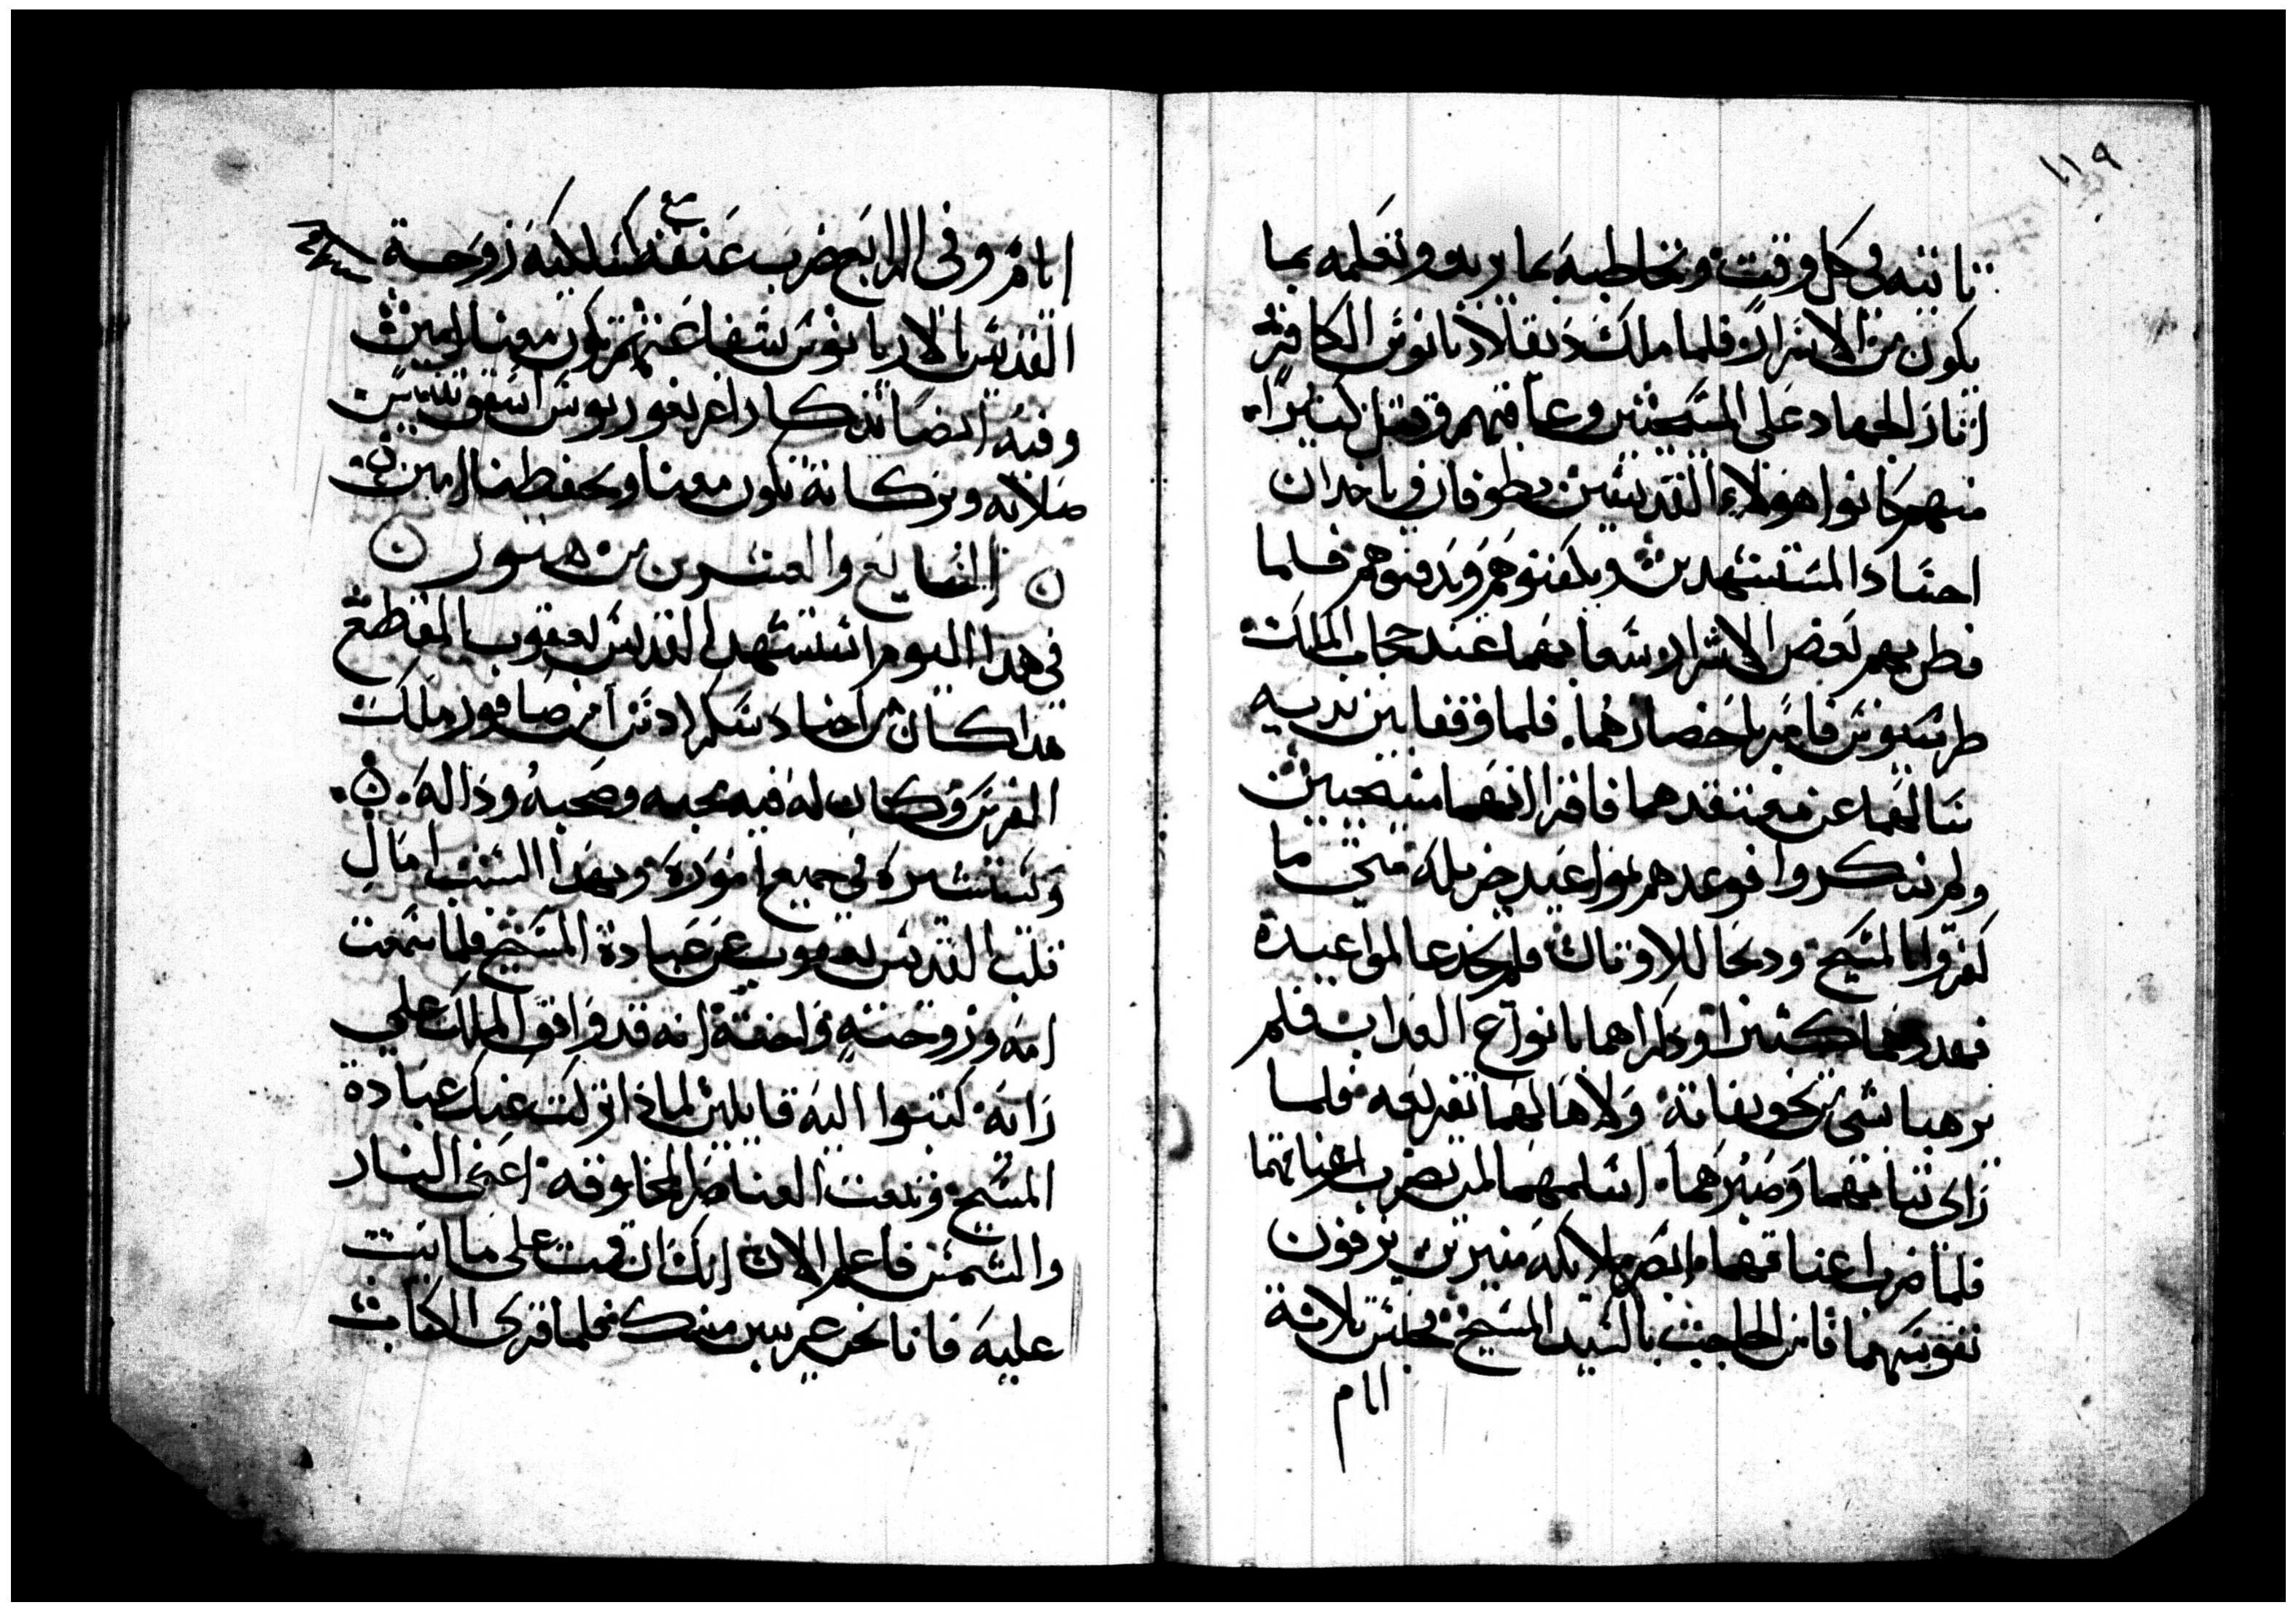 ١١٩
تاتيه في كل وقت وتخاطبه بما يريد وتعلمه بما
يكون من الاسرار فلما ملك دقلاديانوس الكافر
اثار الجهاد على المسيحيين وعاقبهم وقتل كثيرا
منهم كانوا هولاء القديسين يطوفان وياخدان
اجساد المستشهدين ويكفنوهم ويدفنوهم فلما
فطن بهم بعض الاشرار سعا بهما عند حجاب الملك
طرسيوس فامر باحضارهما. فلما وقفا بين يديه
سالهما عن معتقدهما فاقرا انهما مسيحيين
ولم ينكروا فوعدهم بمواعيد جزيله متى ما
كفروا بالمسيح ودبحا للاوتان فلم يخدعا لمواعيده
فهددهما كثيرا وذكراهما بانواع العداب فلم
يرهبا شي من تخويفاته ولا هالهما تفزيعه فلما
راى تباتهما وصبرهما. اسلمهما لمن يضرب اعناقهما
فلما ضرب اعناقهما ابصر ملايكه منيرين يزفون
نفوسهما فامن الحاجب بالسيد المسيح فحبس تلاتة
ايام
ايام وفي الرابع ضرب عنقه مع زوجة
القديس بالاريانوس شفاعتهم تكون معنا امين
وفيه ايضا تدكار اغريغوريوس اسقف نيسس
صلاته وبركاته تكون معنا وتحفظنا امين
السابع والعشرين من هتور
في هدا اليوم استشهد القديس يعقوب المقطع
هدا كان من اجناد سكراد بن صافور ملك
الفرس وكان له فيه محبه وصحبه وداله
ويستشيره في جميع اموره وبهدا السبب امال
قلب القديس يعقوب عن عبادة المسيح فلما سمعت
امه وزوجته واخته انه قد وافق الملك على
رايه كتبوا اليه قايلين لمادا تركت عنك عبادة
المسيح وتبعت العناصر المخلوقه اعنى النار
والشمس فاعلم الان انك ان قمت على ما انت
عليه فانا نحن غريبين منك فلما قرى الكتاب